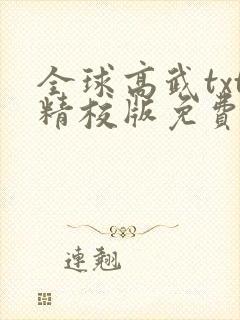 全球高武txt
精校版免費
連翹